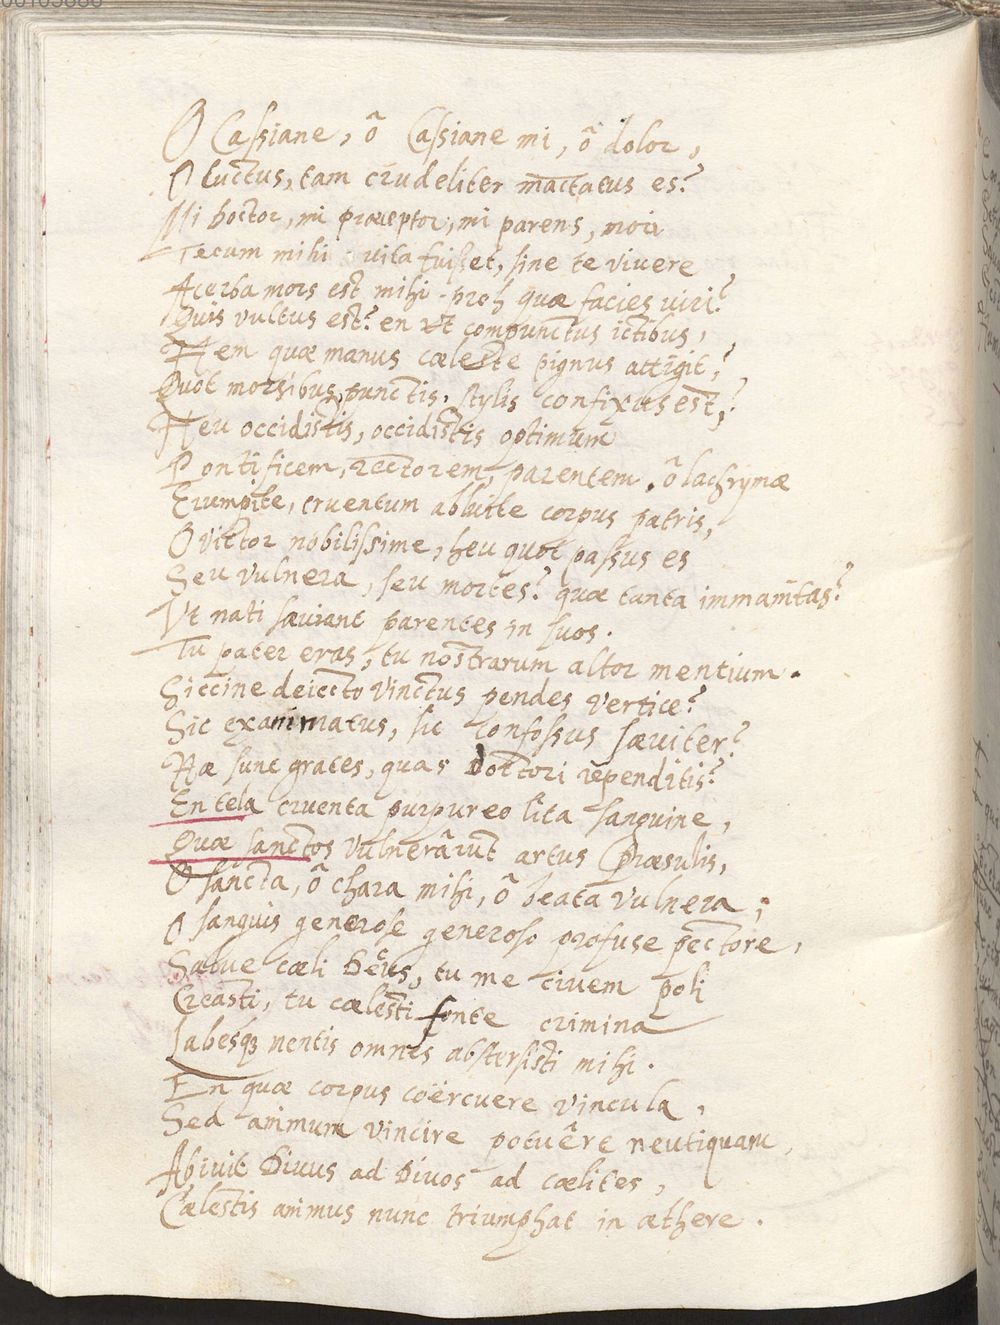 O Cassiane, ô Cassiane mi, ô dolor,
O luctus, tam crudeliter mactatus es?
Mi Doctor, mi præceptor, mi parens, mori
Tecum mihi vita fuisset, sine te vivere
Acerba mors est mihi. proh quæ facies viri?
Quis vultus est? en ut compunctus ictibus,
Hem quæ manus cæleste pignus attigit,?
Quot morsibus, punctis, stylis confixus est,?
Heu occidistis, occidistis optimum
Pontificem, rectorem, parentem, ô lachrymæ
Erumpite, cruentum abluite corpus patris,
O victor nobilissime, heu quot passus es
Seu vulnera, seu mortes? quæ tanta immanitas?
Ut nati sæviant parentes in suos.
Tu pater eras, tu nostrarum altor mentium.
Siccine deiecto vinctus pendes vertice?
Sic exanimatus, sic confossus sæviter?
Hæ sunt grates, quas Doctori rependitis?
En tela cruenta purpureo lita sanguine,
Quæ sanctos vulnerârunt artus Præsulis,
O sancta, ô chara mihi, ô beata vulnera,
O sanguis generose generoso profuse pectore,
Salve cæli Deus, tu me civem poli
Creasti, tu cælesti fonte crimina
Labesq3 mentis omnes abstersisti mihi.
En quæ corpus coërcuere vincula,
Sed animum vincire potuêre neutiquam,
Abivit Divus ad Divos ad cælites,
Cælestis animus nunc triumphat in æthere.